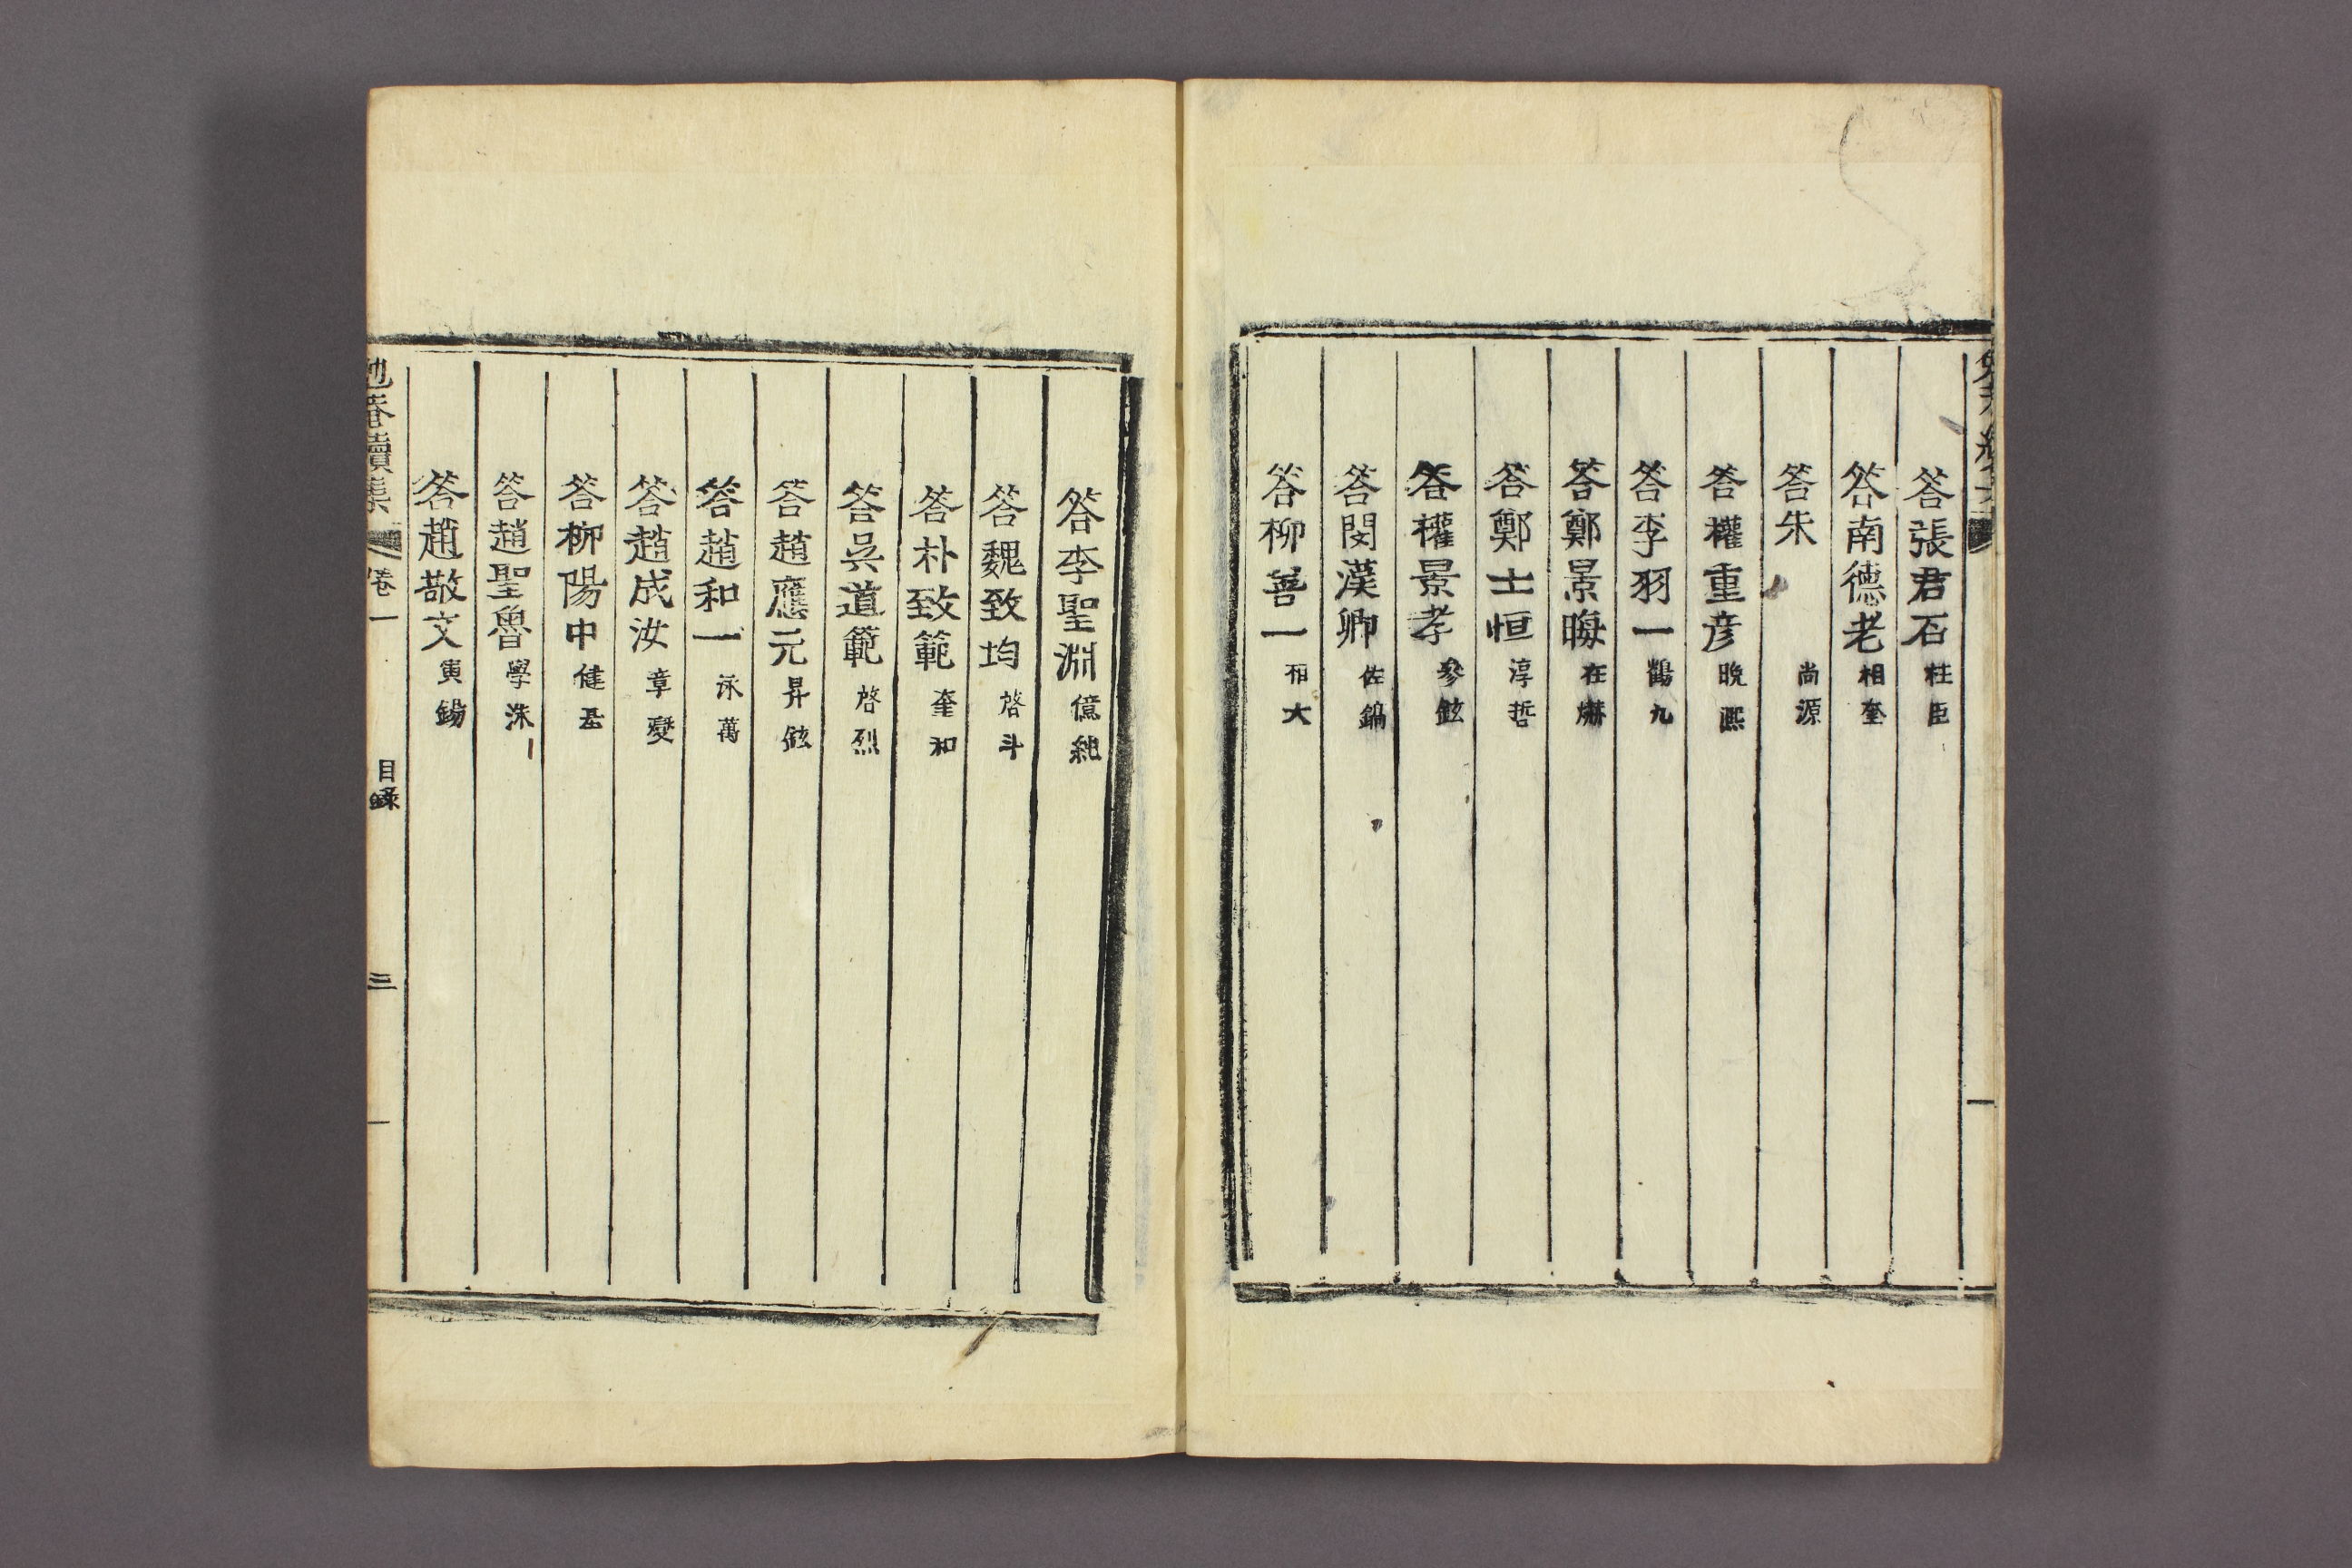 答張君石柱臣
答南德老相奎
答朱尚源
答權重彦晩熙
答李羽一鶴九
答鄭景晦在爀
答鄭士恒淳哲
答權景孝參鉉
答閔漢卿佐鎬
答柳善一大
一
答李聖淵億純
答魏致均啓斗
答朴致範奎和
答吳道範啓烈
答趙應元昇鉉
答趙和一泳萬
答趙成汝章燮
答柳陽中健
答趙聖魯學洙
答趙敬文寅錫
勉菴續集 卷一 目錄 三